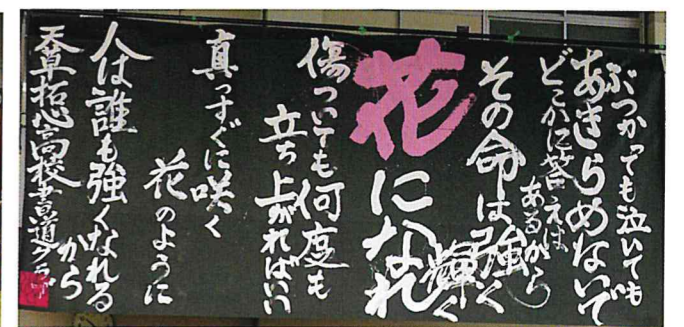 ぶつかっても泣いても
あきらめないで
どこかに答えは
あるから
その命は強く
輝く
花になれ
傷ついても何度も
立ち上がればいい
真っすぐに咲く
花のように
人は誰も強くなれる
から
天草拓心高校書道クラブ